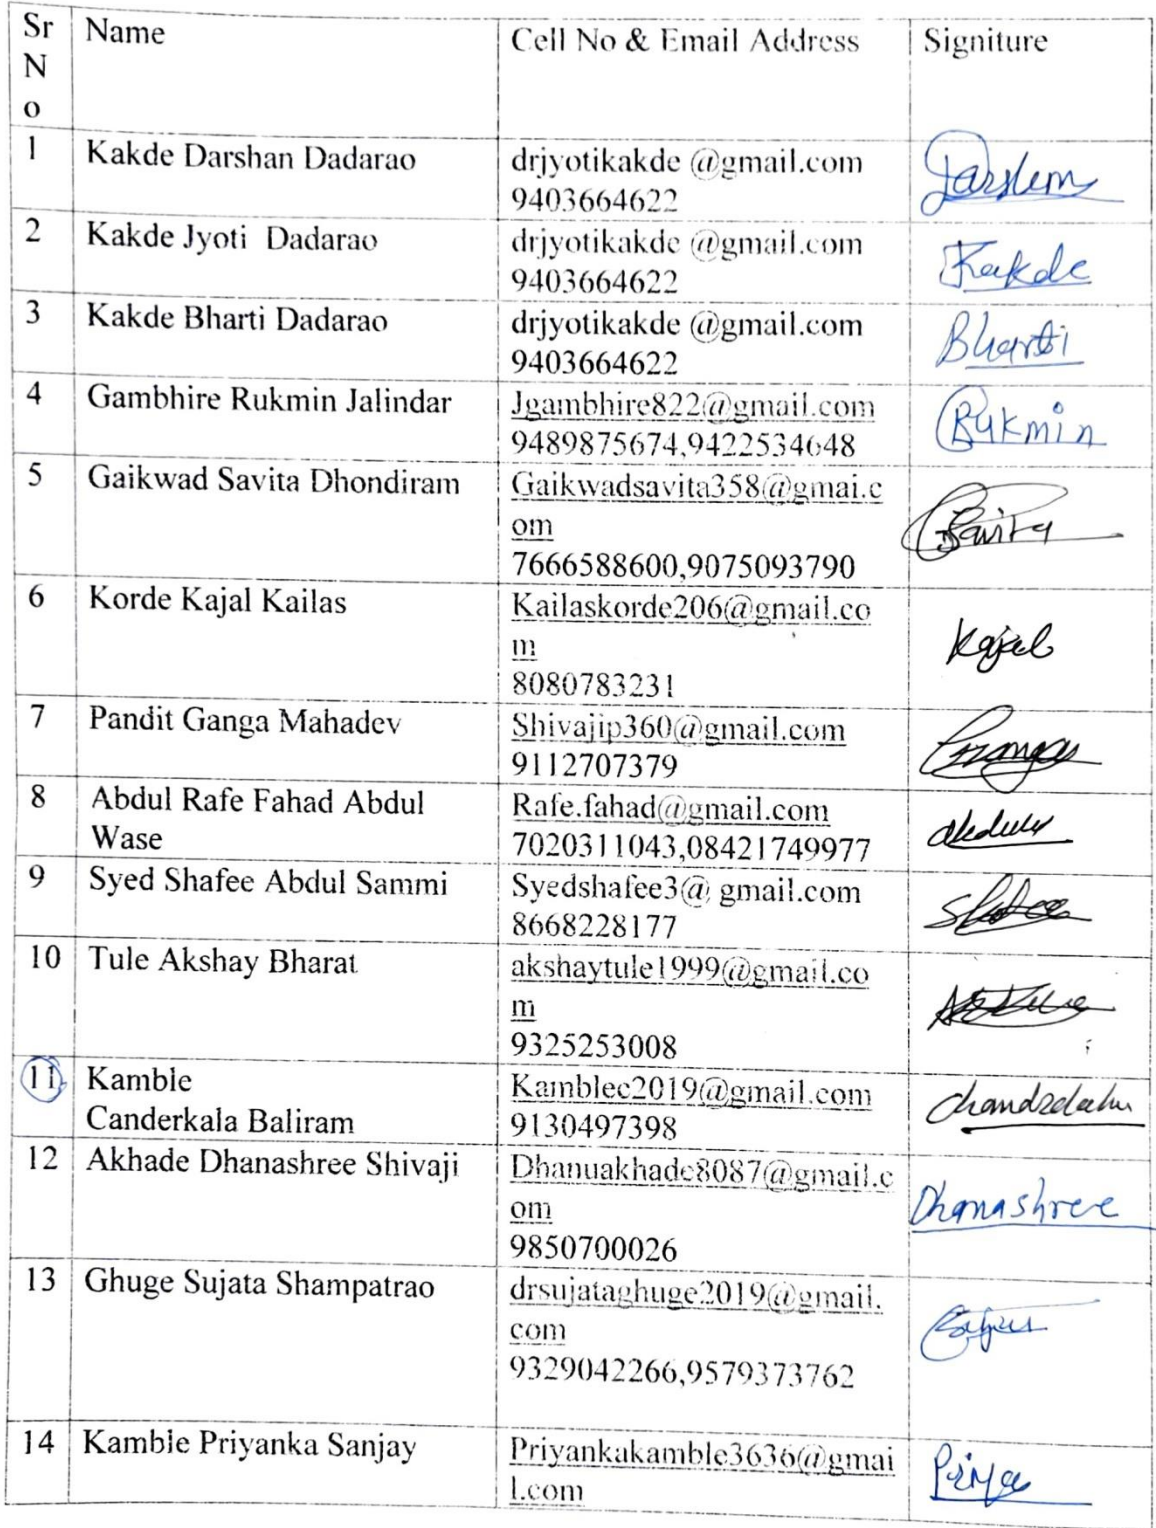 Sr
N
o
Name
Cell No & Email Address
Signiture
1
Kakde Darshan Dadarao
drjyotikakde @gmail.com
9403664622
2
Kakde Jyoti Dadarao
drjyotikakde @gmail.com
9403664622
Kakde
3
Kakde Bharti Dadarao
drjyotikakde @gmail.com
9403664622
Bharti
4
Gambhire Rukmin Jalindar
Jgambhire822@gmail.com
9489875674,9422534648
Rukmin
5
Gaikwad Savita Dhondiram
Gaikwadsavita358@gmai.c
om
7666588600,9075093790
Savita
6
Korde Kajal Kailas
Kailaskorde206@gmail.co
m
8080783231
Kajal
7
Pandit Ganga Mahadev
Shivajip360@gmail.com
9112707379
8
Abdul Rafe Fahad Abdul
Wase
Rafe.fahad@gmail.com
7020311043,08421749977
9
Syed Shafee Abdul Sammi
Syedshafee3@ gmail.com
8668228177
10
Tule Akshay Bharat
akshaytule1999@gmail.co
m
9325253008
11
Kamble
Canderkala Baliram
Kamblec2019@gmail.com
9130497398
12
Akhade Dhanashree Shivaji
Dhanuakhade8087@gmail.c
om
9850700026
Dhanashree
13
Ghuge Sujata Shampatrao
drsujataghuge2019@gmail.
com
9329042266,9579373762
14
Kamble Priyanka Sanjay
Priyankakamble3636@gmai
l.com
Priya